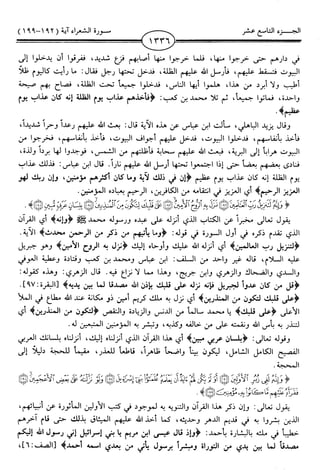 الجزء التاسع عشر
١٣٣٦
سورة الشعراء آية (١٩٢-١٩٩)
في دارهم حتى خرجوا منها، فلما خرجوا منها أصابهم فزع شديد، ففرقوا أن يدخلوا إلى
البيوت فتسقط عليهم، فأرسل الله عليهم الظلة، فدخل تحتها رجل فقال: ما رأيت كاليوم ظلاً
أطيب ولا أبرد من هذا، هلموا أيها الناس، فدخلوا جميعاً تحت الظلة، فصاح بهم صيحة
واحدة، فماتوا جميعاً، ثم تلا محمد بن كعب: ﴿فأخذهم عذاب يوم الظلة إنه كان عذاب يوم
عظيم﴾.
وقال يزيد الباهلي، سألت ابن عباس عن هذه الآية قال: بعث الله عليهم رعداً وحراً شديداً،
فأخذ بأنفاسهم، فدخلوا البيوت، فدخل عليهم أجواف البيوت، فأخذ بأنفاسهم، فخرجوا من
البيوت هراباً إلى البرية، فبعث الله عليهم سحابة فأظلتهم من الشمس، فوجدوا لها برداً ولذة،
فنادى بعضهم بعضاً حتى إذا اجتمعوا تحتها أرسل الله عليهم ناراً. قال ابن عباس: فذلك عذاب
يوم الظلة إنه كان عذاب يوم عظيم ﴿إن في ذلك لآية وما كان أكثرهم مؤمنين، وإن ربك لهو
العزيز الرحيم﴾ أي العزيز في انتقامه من الكافرين، الرحيم بعباده المؤمنين.
يقول تعالى مخبراً عن الكتاب الذي أنزله على عبده ورسوله محمد ﷺ ﴿وإنه﴾ أي القرآن
الذي تقدم ذكره في أول السورة في قوله: ﴿وما يأتيهم من ذكر من الرحمن محدث﴾ الآية.
﴿لتنزيل رب العالمين﴾ أي أنزله الله عليك وأوحاه إليك ﴿نزل به الروح الأمين﴾ وهو جبريل
عليه السلام، قاله غير واحد من السلف: ابن عباس ومحمد بن كعب وقتادة وعطية العوفي
والسدي والضحاك والزهري وابن جريج، وهذا مما لا نزاع فيه. قال الزهري: وهذه كقوله:
﴿قل من كان عدواً لجبريل فإنه نزله على قلبك بإذن الله مصدقاً لما بين يديه﴾ [البقرة: ٩٧].
﴿على قلبك لتكون من المنذرين﴾ أي نزل به ملك كريم أمين ذو مكانة عند الله مطاع في الملأ
الأعلى ﴿على قلبك﴾ يا محمد سالماً من الدنس والزيادة والنقص ﴿لتكون من المنذرين﴾ أي
لتنذر به بأس الله ونقمته على من خالفه وكذبه، وتبشر به المؤمنين المتبعين له.
وقوله تعالى: ﴿بلسان عربي مبين﴾ أي هذا القرآن الذي أنزلناه إليك، أنزلناه بلسانك العربي
الفصيح الكامل الشامل، ليكون بيناً واضحاً ظاهراً، قاطعاً للعذر، مقيماً للحجة دليلاً إلى
المحجة.
يقول تعالى: وإن ذكر هذا القرآن والتنويه به لموجود في كتب الأولين المأثورة عن أنبيائهم،
الذين بشروا به في قديم الدهر وحديثه، كما أخذ الله عليهم الميثاق بذلك حتى قام آخرهم
خطيباً في ملئه بالبشارة بأحمد: ﴿وإذ قال عيسى ابن مريم يا بني إسرائيل إني رسول الله إليكم
مصدقاً لما بين يدي من التوراة ومبشراً برسول يأتي من بعدي اسمه أحمد﴾ [الصف: ٦]،